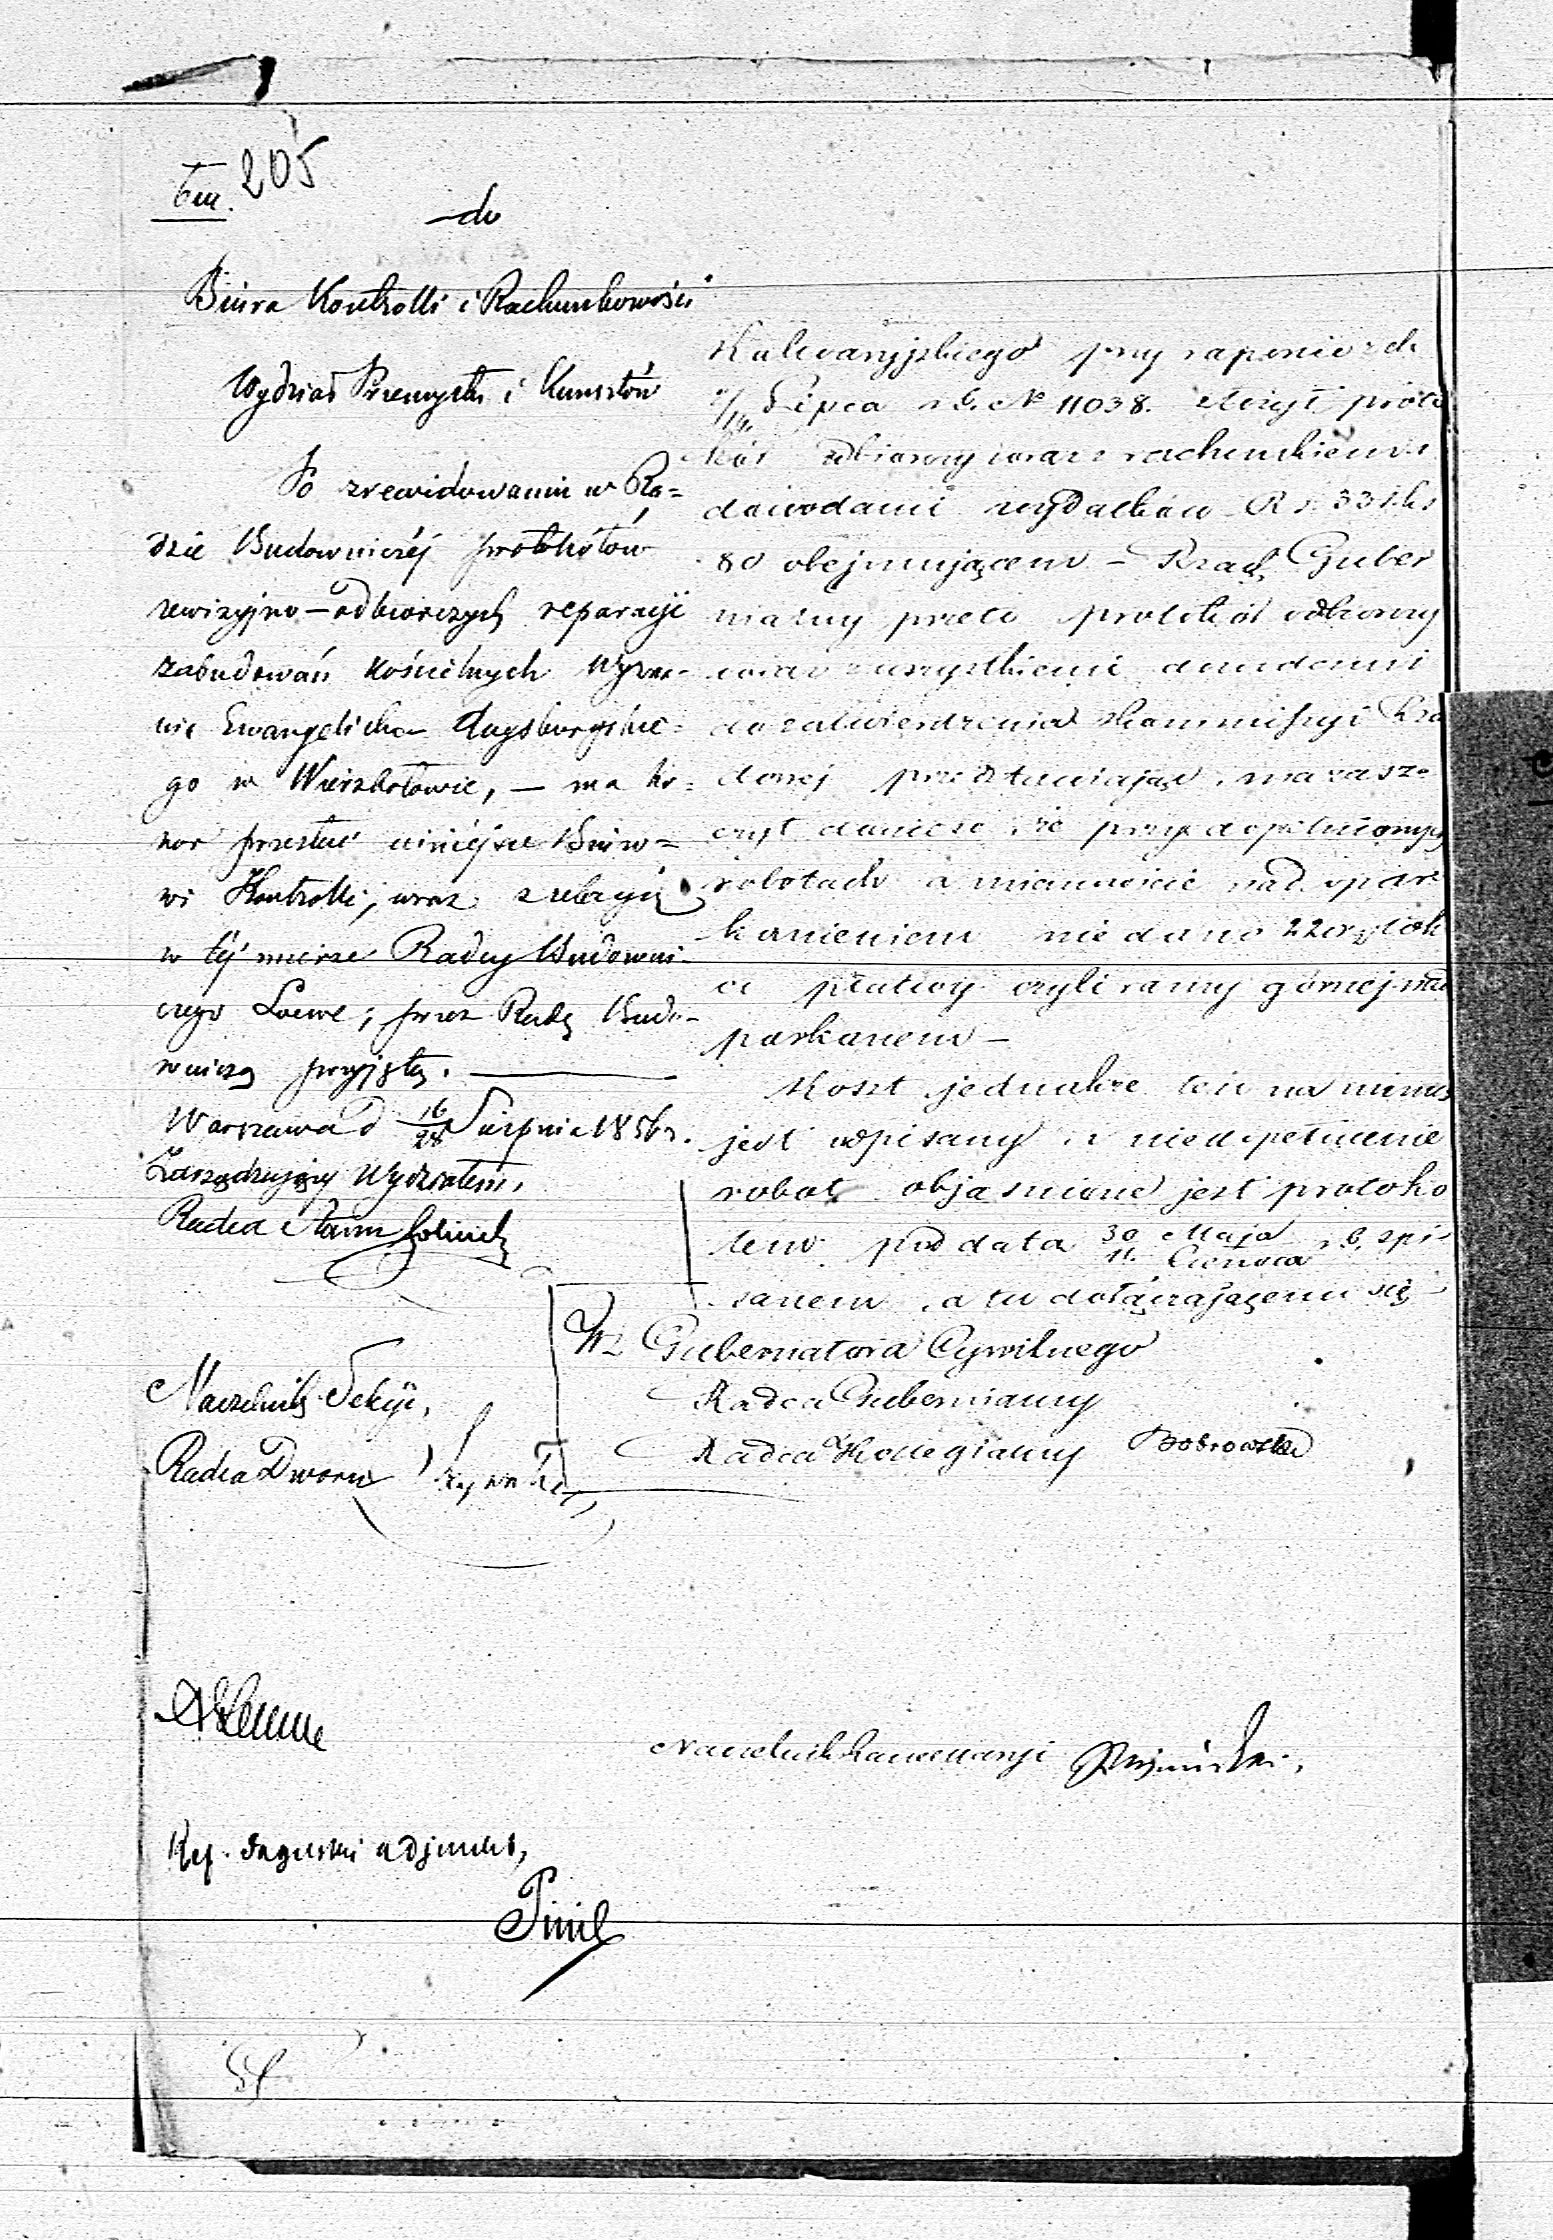 205
do
Biura Kontrolli i Rachunkowości
Wydział Przemysłu i Kunsztów
Po zrewidowaniu w Ra=
dzie Budowniczéj protokółów
rewizyjno-odbiorczych reparacyi
zabudowań kościelnych Wyzna-
nia Ewangelicko Augsburgskie=
go w Wierzbołowie, — ma ho=
nor przesłać niniéjsze Biuro=
wi Kontrolli, wraz z relacyą
w téj mierze Radcy Budowni-
czego Loewe; przez Radę Budo-
wniczą przyjętą. —
Warszawa d 16/28 Sierpnia 1856 r.
Zarządzający Wydziałem,
Radca Stanu
Naczelnik Sekcyi,
Radca Dworu
adjunkt,
Kalwaryjskiego przy raporcie z d.
Lipca r. b. N 11038. złożył proto
kół odbiorczy wraz z rachunkiem i
dowodami wydatków Rs. 331 k.
80 obejmującem — Rząd Guber
nialny przeto protokół odbiorczy
wraz z wszystkiemi dowodami
do zatwierdzenia Kommissyi Rzą
dowej przedstawiając, ma zasz
czyt donieść że przy dopełnionych
robotach a mianowicie nad opar
kanieniem nie dano 22
ci płatwy czyli ramy górnej nad
parkanem —
Koszt jednakże ten na minus
jest odpisany i niedopełnienie
robot objaśnione jest protoko
łem pod data 30 Maja / 11 Czerwca r. b. spi-
sanem, a tu dołączającem się —
Wz Gubernatora Cywilnego
Radca Gubernialny
Radca Kollegialny Bobrowski
Naczelnik Kancellaryi